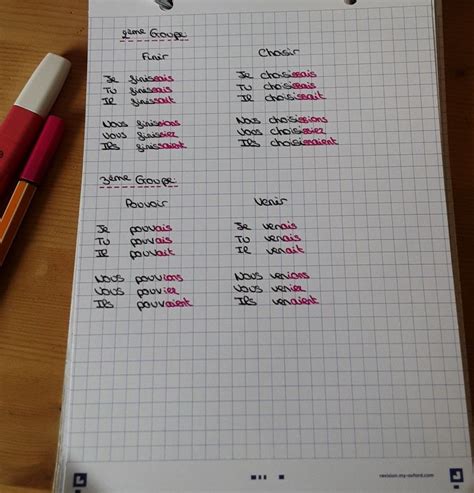 2ème Groupe:
Finir Choisir
Je finissais Je choisissais
Tu finissais Tu choisissais
Il finissait Il choisissait
Nous finissions Nous choisissions
Vous finissiez Vous choisissiez
Ils finissaient Ils choisissaient
3ème Groupe:
Pouvoir Venir
Je pouvais Je venais
Tu pouvais Tu venais
Il pouvait Il venait
Nous pouvions Nous venions
Vous pouviez Vous veniez
Ils pouvaient Ils venaient
revision.my-oxford.com